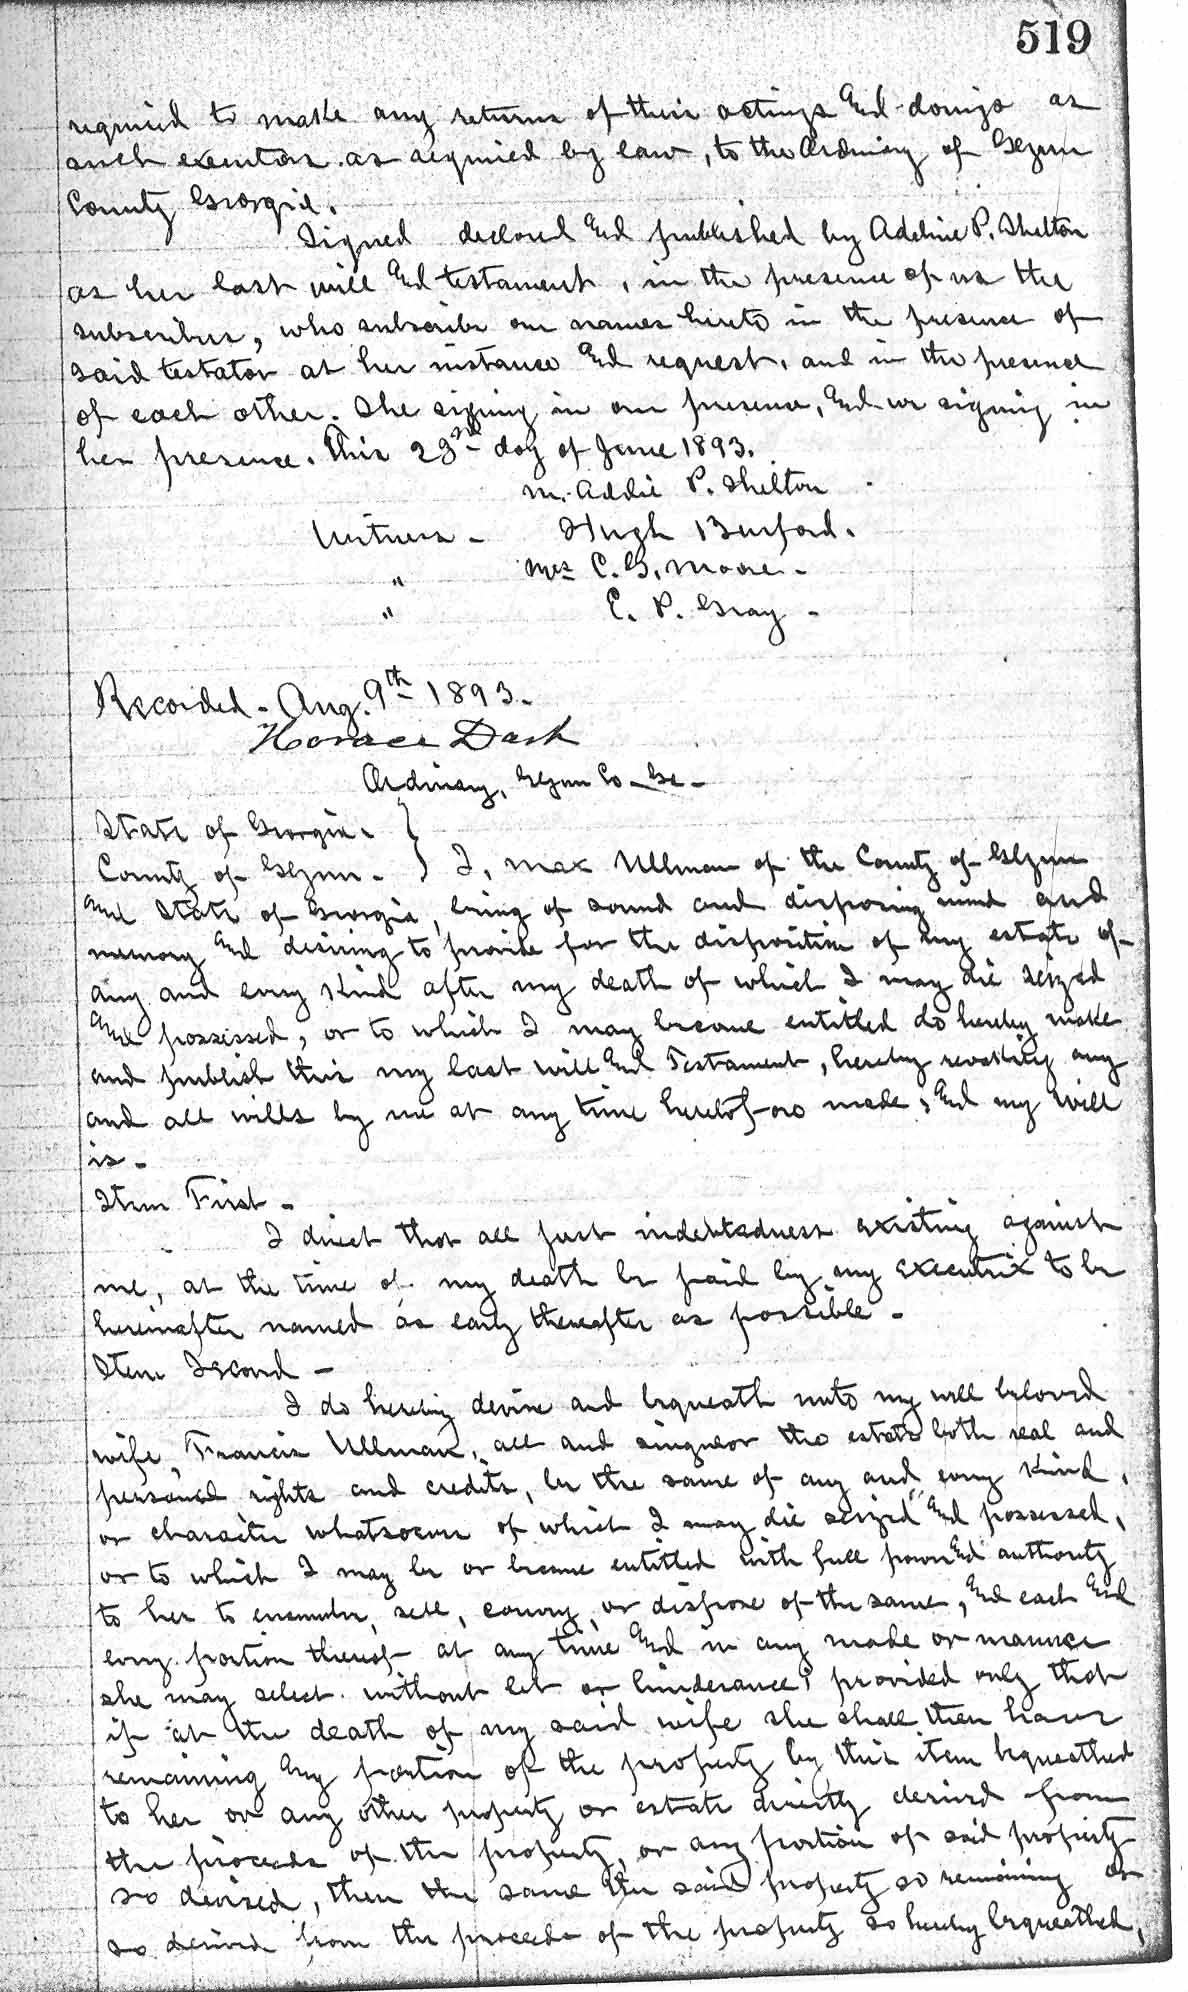 519
required to make any returns of their actings and doings as
such executors as required by law, to the Ordinary of Glynn
County Georgia.
Signed declared and published by Adeline P. Shelton
as her last will and testament, in the presence of us the
subscribers, who subscribe our names hereto in the presence of
said testator at her instance and request, and in the presence
of each other. She signing in our presence, and we signing in
her presence. This 23rd day of June 1893.
M. Addie P. Shelton
Witness - Hugh Burford.
" Mrs C. G. Moore -
" C. P. Gray -
Recorded - Aug. 9th 1893.
Horace Dart
Ordinary, Glynn Co - Ga -
State of Georgia. }
County of Glynn. } I, Max Ullman of the County of Glynn
and State of Georgia, being of sound and disposing mind and
memory and desiring to provide for the disposition of my estate of
any and every kind after my death of which I may die seized
and possessed, or to which I may become entitled do hereby make
and publish this my last will and Testament, hereby revoking any
and all wills by me at any time heretofore made, and my will
is -
Item First -
I direct that all just indebtedness existing against
me, at the time of my death be paid by my executrix to be
hereinafter named as early thereafter as possible -
Item Second -
I do hereby devise and bequeath unto my well beloved
wife, Francis Ullman, all and singular the estate both real and
personal rights and credits, be the same of any and every kind,
or character whatsoever of which I may die seized and possessed,
or to which I may be or become entitled with full power and authority
to her to encumber, sell, convey, or dispose of the same, and each and
every portion thereof at any time and in any mode or manner
she may select without let or hinderance; provided only that
if at the death of my said wife she shall then have
remaining any portion of the property by this item bequeathed
to her or any other property or estate directly derived from
the proceeds of the property, or any portion of said property
so devised, then the same the said property so remaining or
so derived from the proceeds of the property so hereby bequeathed,